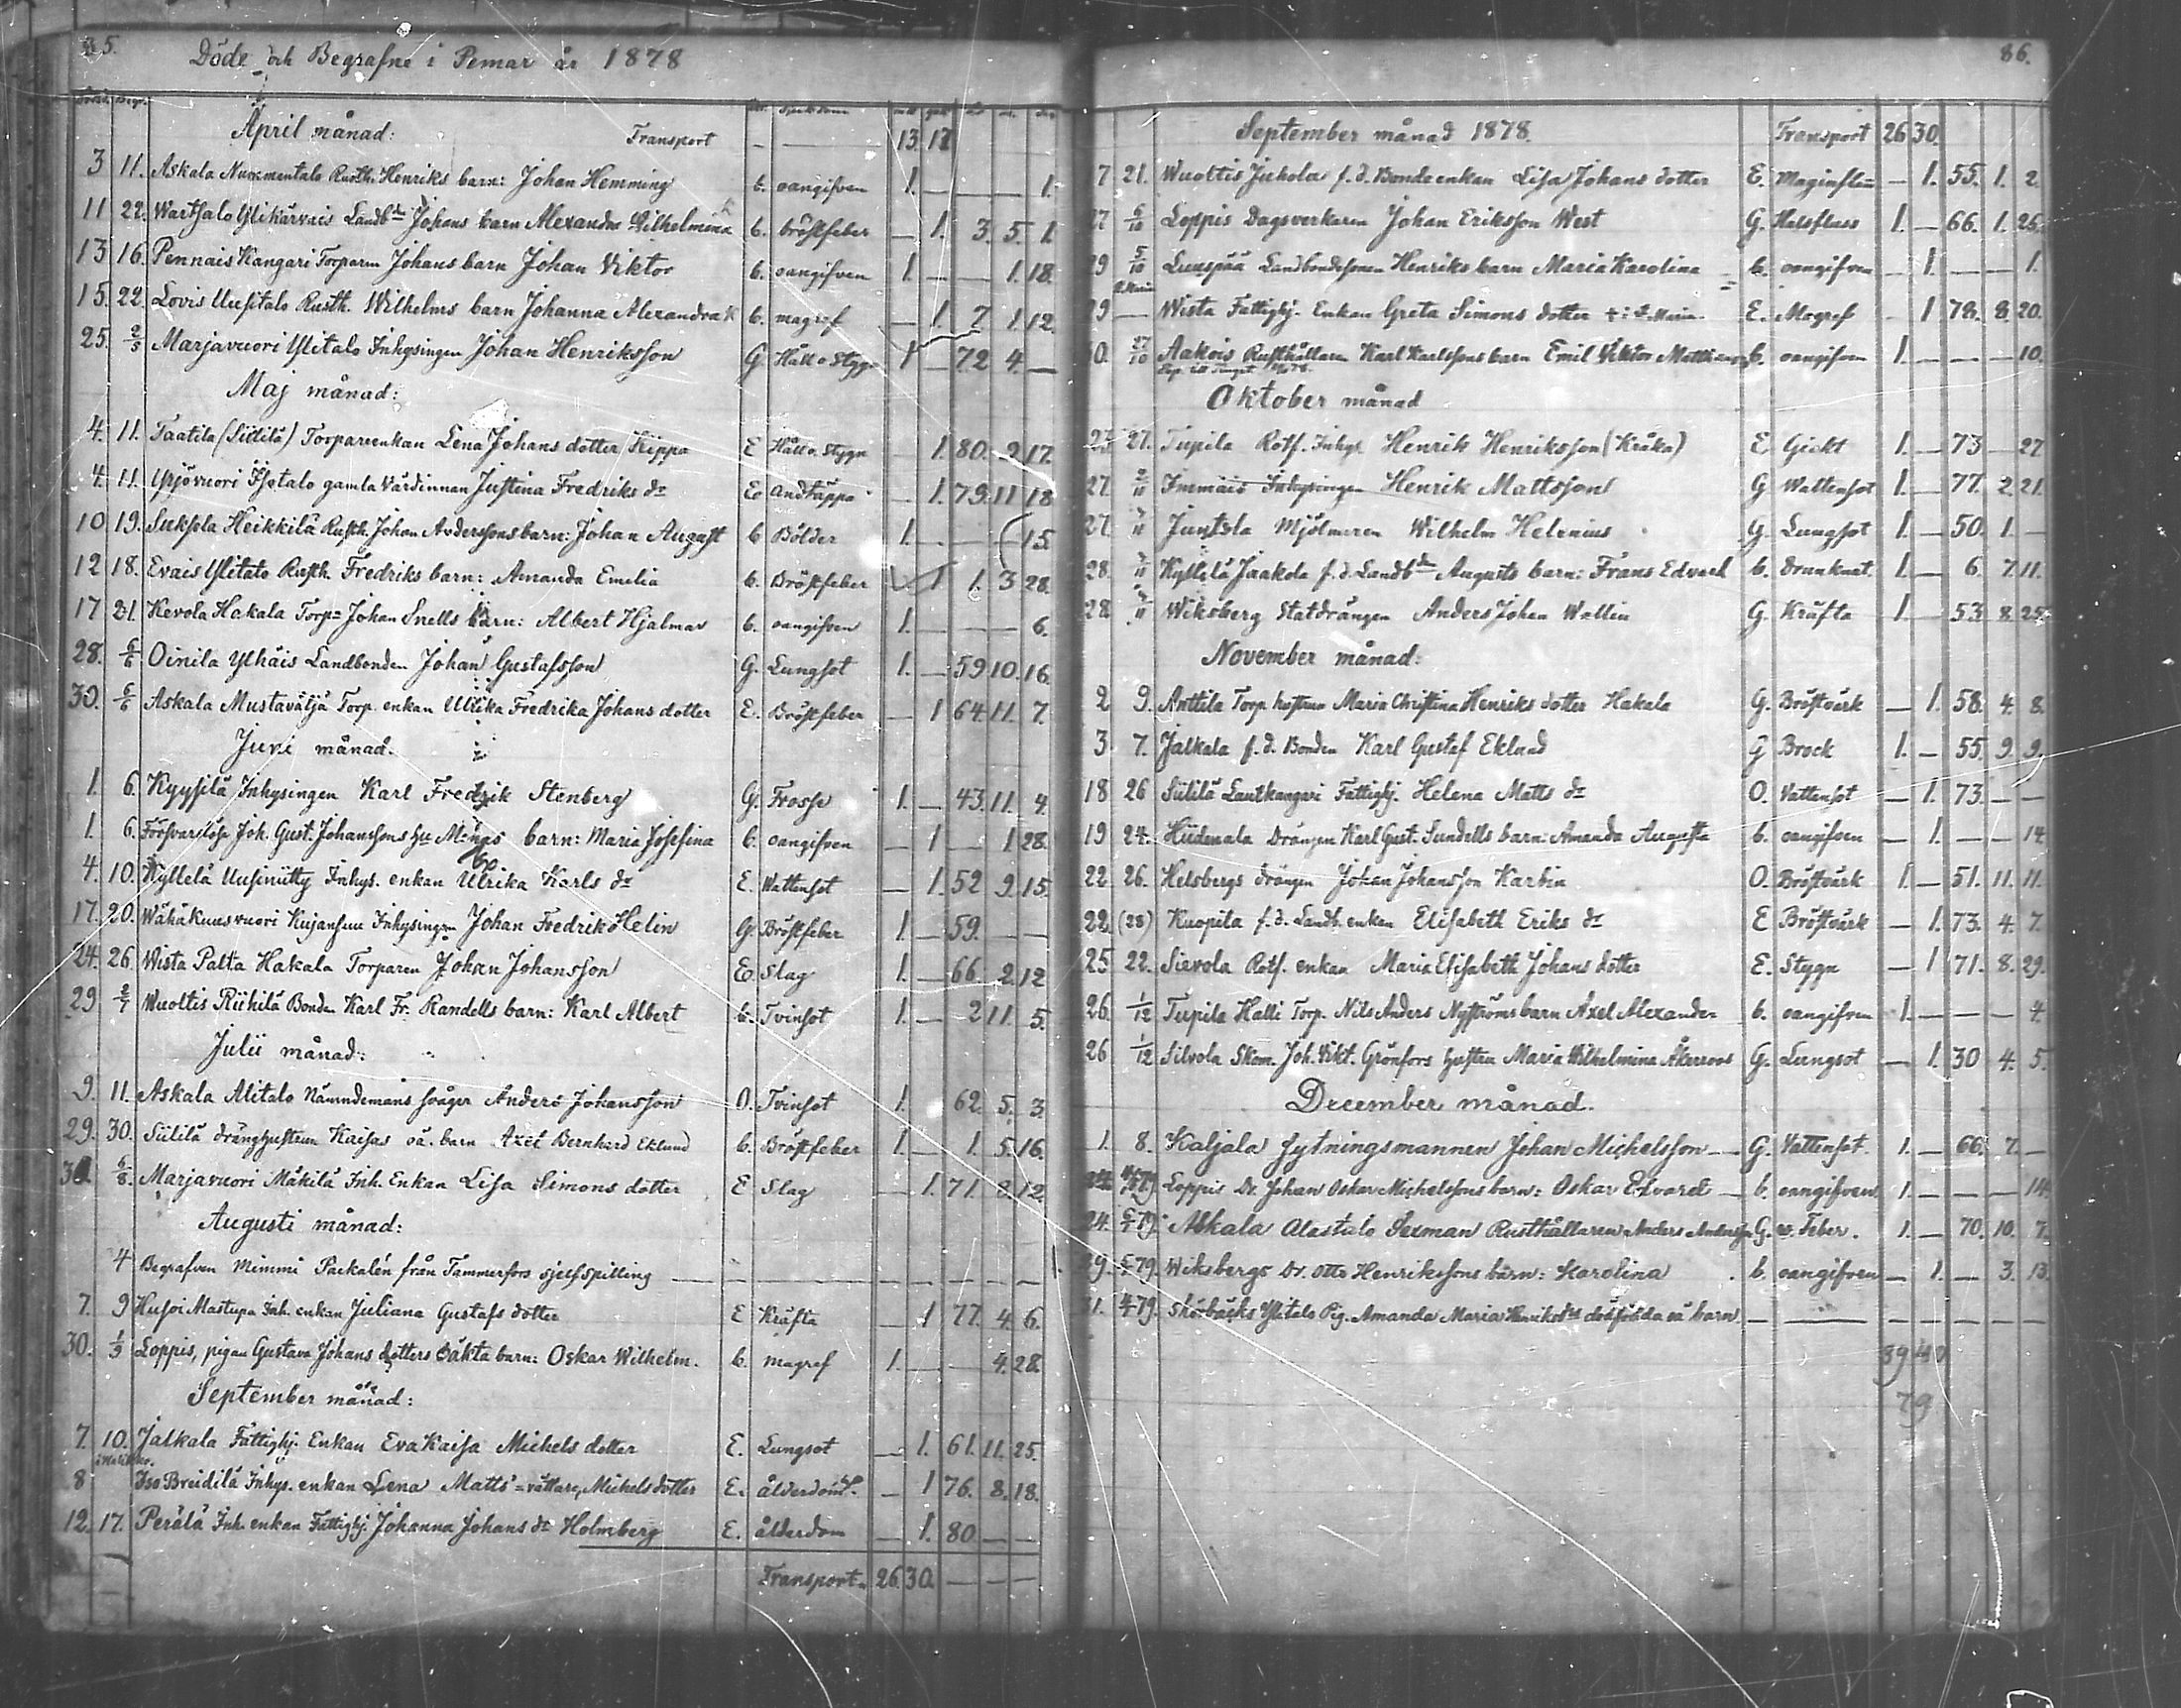 85.
Döde och Begrafne i Pemar år 1878
April månad: Transport — — 13. 17.
3 11. Askala Nummentalo Rusth. Henriks barn: Johan Hemming b. oangifven 1. — — — 1.
11 22. Wartsalo Ylikärvais Landbde Johans barn Alexandra Wilhelmina b. bröstfeber — 1. 3. 5. 1.
13 16. Pennais Kangari Torparen Johans barn Johan Viktor b. oangifven 1. — — 1. 18.
15. 22. Lovis Uusitalo Rusth. Wilhelms barn Johanna Alexandra b. magref — 1. 7 1. 12.
25. 2/5 Marjavuori Ylitalo Inhysingen Johan Henriksson G Håll o Stygn 1 — 72 4. —
Maj månad:
4. 11. Taatila (Siitilä) Torpareenkan Lena Johans dotter Skippo E Håll o. Stygn 1. 80. — 2 17.
4. 11. Yrjövuori Isotalo gamla Värdinnan Justina Fredriks dr E andtäppa — 1. 79. 11 18
10 19. Suksela Heikkilä Rusth. Johan Anderssons barn: Johan August b Bölder 1. — — — 15.
12 18. Evais Ylitalo Rusth. Fredriks barn: Amanda Emelia b. Bröstfeber 1 1. 3 28.
17 21. Kevola Hakala Torp= Johan Snells barn: Albert Hjalmar b. oangifven 1. — — — 6.
28. 6/6 Oinila Ylhäis Landbonden Johan Gustafsson G. Lungsot 1. — 59 10. 16.
30. 6/6 Askala Mustaväljä Torp. enkan Ulrika Fredrika Johans dotter E. Bröstfeber — 1 64. 11. 7.
Juni månad.
1. 6. Kyysilä Inhysingen Karl Fredrik Stenberg G. Frossa 1. — 43. 11. 4.
1. 6. Försvarslöse Joh. Gust. Johanssons barn: Maria Josefina b. oangifven — 1 — 1 28.
4. 10. Kyllelä Uusiniitty Inhys. enkan Ulrika Karls dr E. Wattensot — 1. 52 9. 15.
17. 20. Wähäkuusvuori Kujansuu Inhysingen Johan Fredrik Helin G. Bröstfeber 1. — 59. — —
24. 26. Wista Palta Hakala Torparen Johan Johansson E. Slag 1. — 66. 2. 12
29 2/7 Wuoltis Riihilä Bonden Karl Fr. Randells barn: Karl Albert b. Tvinsot 1. — 2 11. 5.
Julii månad:
9. 11. Askala Alitalo Nämndemans svåger Anders Johansson O. Tvinsot 1. 62. 5. 3.
29. 30. Siitilä dränghustrun Kaisas oä. barn Axel Bernhard Eklund b. Bröstfeber 1. — 1. 5. 16.
6/8. Marjavuori Mäkilä Inh. Enkan Lisa Simons dotter E Slag — 1. 71. 12.
Augusti månad:
4 Begrafven Mimmi Packalén från Tammerfors sjelfspilling
7. 9 Husoi Mastupa Inh. enkan Juliana Gustafs dotter E Kräfta — 1 77. 4. 6.
30. 1/9 Loppis, pigan Gustava Johans dotters oäkta barn: Oskar Wilhelm. b. magref 1. — — 4. 28.
September månad:
7. 10. Jalkala Fattighj. Enkan Eva Kaisa Michels dotter E. Lungsot — 1. 61. 11. 25.
8 Iso Breidilä Inhys. enkan Lena Matts = rättare, Michelsdotter E. ålderdom — 1 76. 8. 18.
12. 17. Perälä Inh. enkan Fattighj. Johanna Johans dr Holmberg E. ålderdom — 1. 80 — —
Transport. 26. 30. — — —
86.
September månad 1878. Transport 26 30.
7 21. Wuoltis Juhola f.d. Bondeenkan Lisa Johans dotter E. Maginflam — 1. 55. 1. 2.
27 6/10 Loppis Dagsverkaren Johan Eriksson West G. Halsfluss 1. — 66. 1. 26.
29 5/10 Luuspää Landbondesonen Henriks barn Maria Karolina b. oangifven — 1. — — 1.
29 — Wista Fattighj. Enkan Greta Simons dotter + i S. Marie. E. Magref — 1 78. 8. 20.
30. 27/10 Aakois Rusthållaren Karl Karlssons barn Emil Viktor b. oangifven 1. — — — 10.
Oktober månad
23. 27. Tupila Rotf. Inhys. Henrik Henriksson (Kråka) E Gickt 1. — 73 — 27
27. Immäis Inhysingen Henrik Mattsson G Wattensot 1. — 77. 2. 21.
27. Juntola Mjölnaren Wilhelm Helenius G. Lungsot 1. — 50. 1. —
28. Kyllelä Jaakola f.d. Landbde Augusts barn: Frans Edvard b. Drunknat. 1. — 6. 7. 11.
28 Wiksberg Statdrängen Anders Johan Wallin G. Kräfta 1. — 53. 8. 25.
November månad:
2 9. Anttila Torp. hustrun Maria Christina Henriks dotter Hakala G. Bröstvärk — 1. 58. 4. 8.
3 7. Jalkala f.d. Bonden Karl Gustaf Eklund G Brock 1. — 55. 9. 9.
18 26 Siitilä Lautkangari Fattighj. Helena Matts dr O. Vattensot — 1. 73. — —
19 24. Hiidenala Drängen Karl Gust. Sundells barn: Amanda Augusta b. oangifven — 1. — — 14
22 26. Helsbergs drängen Johan Johansson Karbin O. Bröstvärk 1. — 51. 11. 11.
22. (28) Kuopila f.d. Landb. enkan Elisabeth Eriks dr E Bröstvärk — 1. 73. 4. 7.
25 22. Sievola Rotf. enkan Maria Elisabeth Johans dotter E. Stygn — 1 71. 8. 29.
26. 1/12 Tupila Halli Torp. Nils Anders Nyströms barn Axel Alexander b. oangifven 1. — — — 4.
26 1/12 Silvola Skom. Joh. Vikt. Grönfors hustru Maria Wilhelmina Åkerroos G. Lungsot — 1. 30 4. 5.
December månad.
1. 8. Kaljala flytningsmannen Johan Michelsson G. Vattensot. 1. — 66. 7. —
Loppis Dr. Johan Oskar Michelssons barn: Oskar Edvard b. oangifven 1. — — — 14.
24. Askala Alastalo Sexman Rusthållaren Anders G. Feber. 1. — 70. 10. 7.
Wiksbergs Dr. Otto Henrikssons barn: Karolina b. oangifven — 1. — 3. 13.
31. Ylitalo Pig. Amanda Maria dödfödda oä barn
39 40
79